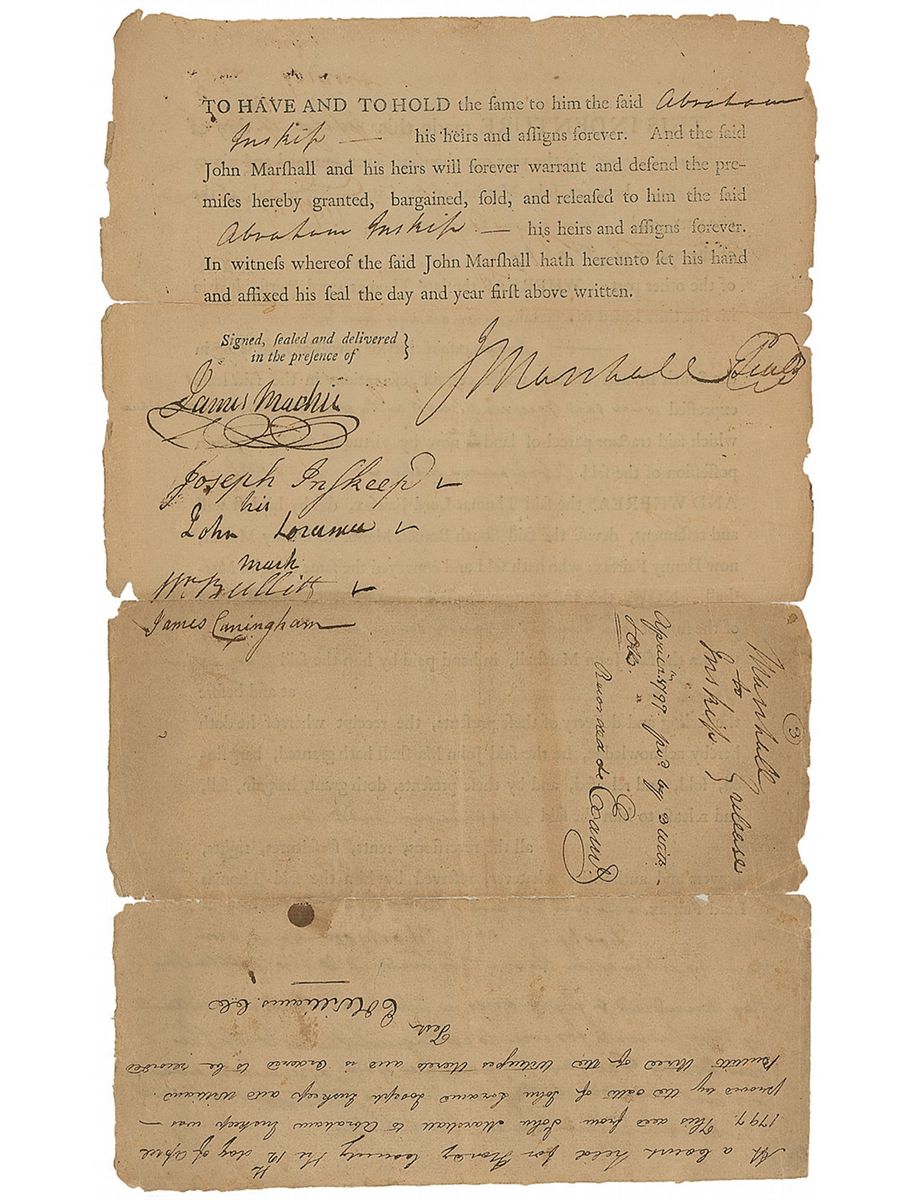 TO HAVE AND TO HOLD the ſame to him the ſaid Abraham
Inskip — his heirs and aſſigns forever. And the ſaid
John Marſhall and his heirs will forever warrant and defend the pre-
miſes hereby granted, bargained, ſold, and releaſed to him the ſaid
Abraham Inskip — his heirs and aſſigns forever.
In witneſs whereof the ſaid John Marſhall hath hereunto ſet his hand
and affixed his ſeal the day and year firſt above written.
Signed, ſealed and delivered
in the preſence of
J Marshall Seal
James Machir
Joseph Inſkeep
his
John Loramee
mark
Wm. Bullitt
James Caningham
3
Marshall
to
Inskip } release
April 1797 pvd. by 3 wits.
& O.R.
Recorded &
Examd.
At a Court held for Hardy County the 12th day of April
1797. This deed from John Marshall to Abraham Inskeep was —
proved by the oaths of John Loramie Joseph Inskeep and William
Bullitt three of the witneſses thereto and is ordered to be recorded
Test
E Williams C.C.